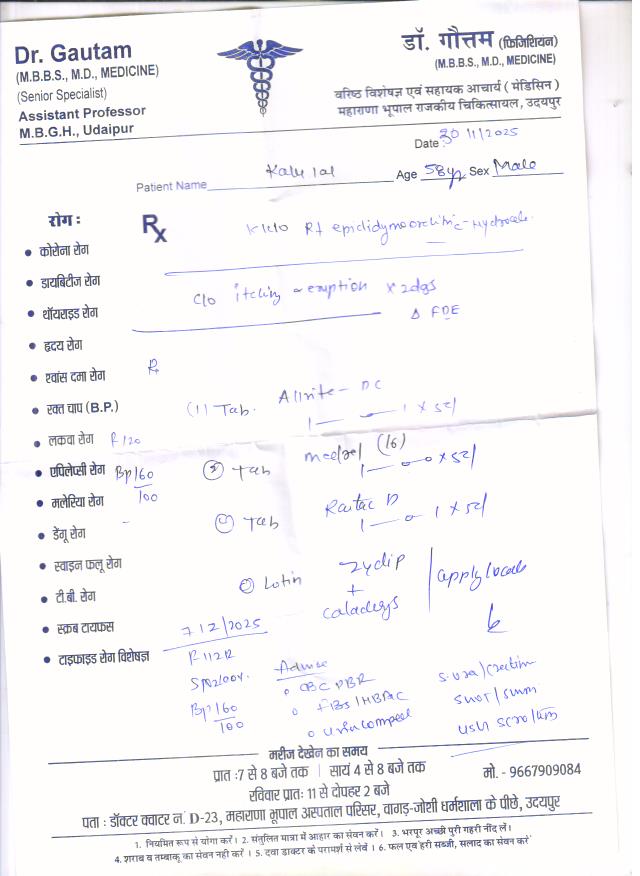 Dr. Gautam
(M.B.B.S., M.D., MEDICINE)
(Senior Specialist)
Assistant Professor
M.B.G.H., Udaipur
डॉ. गौत्तम (फिजिशियन)
(M.B.B.S., M.D., MEDICINE)
वरिष्ठ विशेषज्ञ एवं सहायक आचार्य ( मेडिसिन )
महाराणा भूपाल राजकीय चिकित्सायल, उदयपुर
Date 30 11/2025
Patient Name Kalu lal Age 58y Sex Male
रोग :
Rx
K/c/o Rt epididymoorchitis c Hydrocele
• कोरोना रोग
• डायबिटीज रोग
C/o itching eruption x 2dys
• थॉयराइड रोग
Δ FDE
• हृदय रोग
• श्वांस दमा रोग
• रक्त चाप (B.P.)
(1) Tab. DC
1 — 1 x 5d
• लकवा रोग P 120
• एपिलेप्सी रोग Bp 160/100
② Tab (16)
1 — 0 — 0 x 5d
• मलेरिया रोग
• डेंगू रोग
Tab D
1 — 0 — 1 x 5d
• स्वाइन फ्लू रोग
Lotin Zydip + apply locale
• टी.बी. रोग
• स्क्रब टायफस 7 12/2025
• टाइफाइड रोग विशेषज्ञ
Advice
o CBC PBR
Bp 160/100
o FBS/HBA1C
मरीज देखेन का समय
प्रात :7 से 8 बजे तक | सायं 4 से 8 बजे तक
रविवार प्रातः 11 से दोपहर 2 बजे
मो. - 9667909084
पता : डॉक्टर क्वाटर नं. D-23, महाराणा भूपाल अस्पताल परिसर, वागड़-जोशी धर्मशाला के पीछे, उदयपुर
1. नियमित रूप से योगा करें। 2. संतुलित मात्रा में आहार का सेवन करें। 3. भरपूर अच्छी पुरी गहरी नींद लें।
4. शराब व तम्बाकू का सेवन नही करें । 5. दवा डाक्टर के परामर्श से लेवें । 6. फल एवं हरी सब्जी, सलाद का सेवन करें